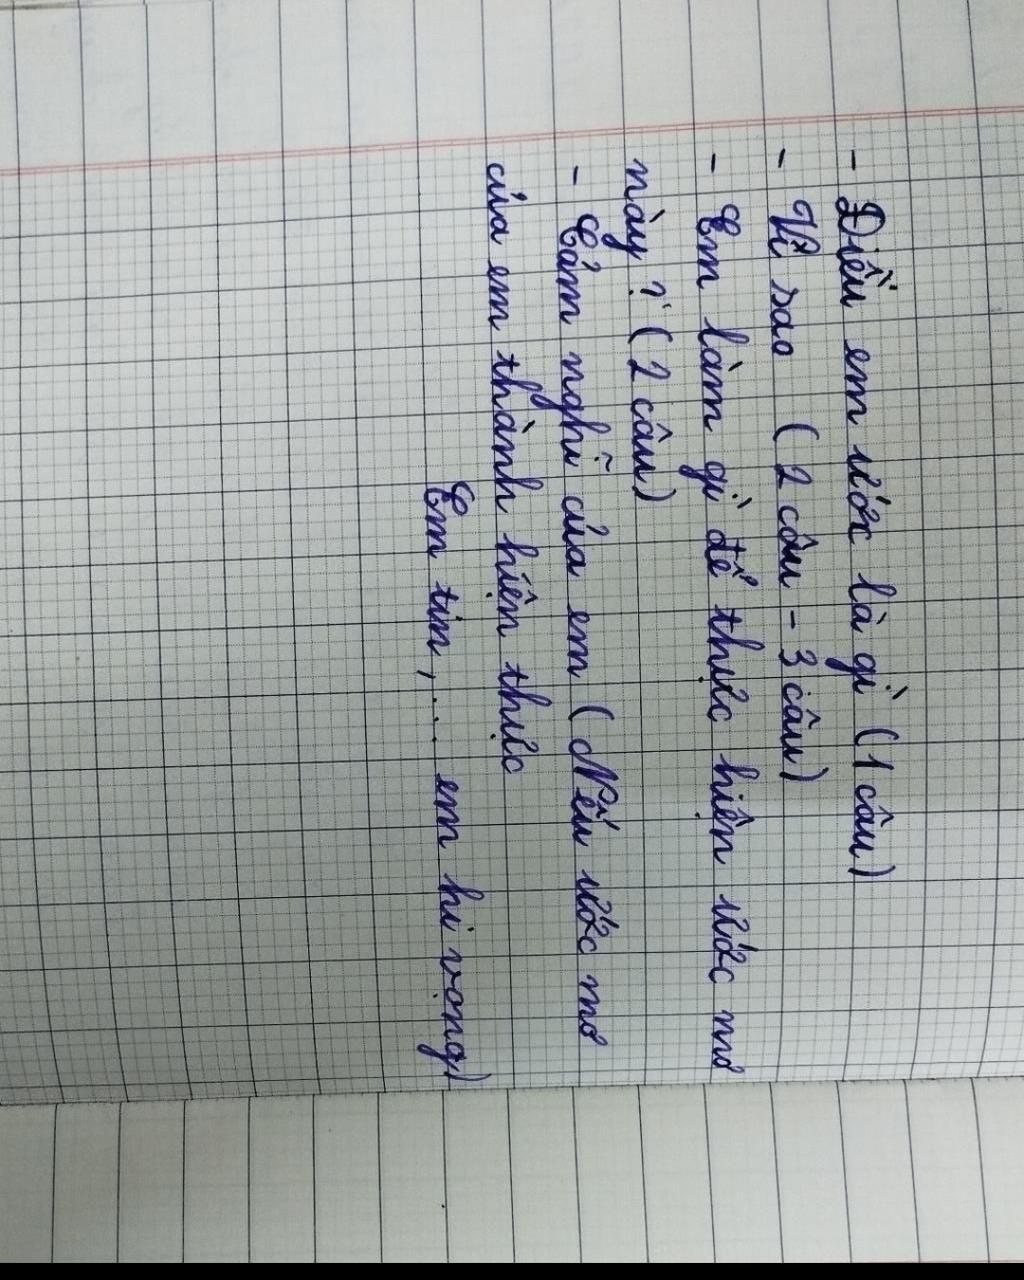 - Điều em ước là gì (1 câu)
- Vì sao (2 câu - 3 câu)
- Em làm gì để thực hiện ước mơ
này ? (2 câu)
- Cảm nghĩ của em (Nếu ước mơ
của em thành hiện thực
Em tin, ... em hi vọng)